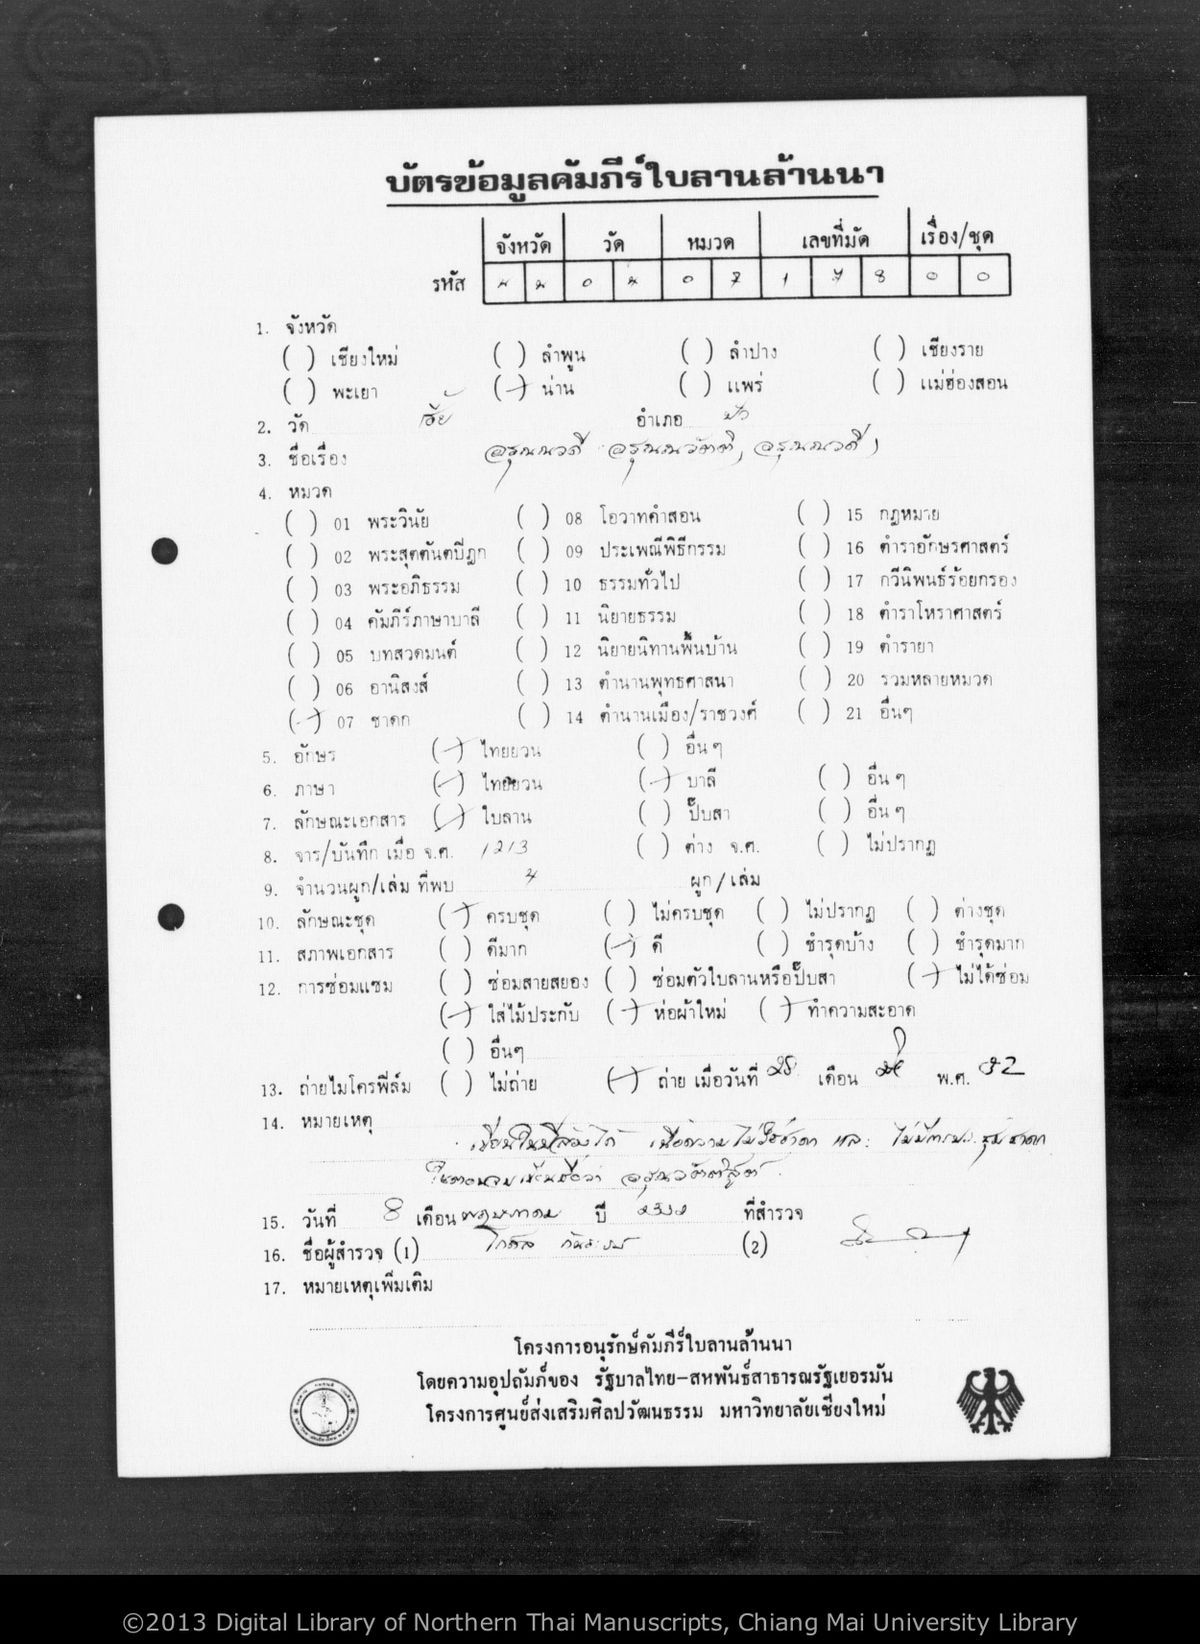 บัตรข้อมูลคัมภีร์ใบลานล้านนา
จังหวัด วัด หมวด เลขที่มัด เรื่อง/ชุด
รหัส น น 0 4 0 7 1 7 8 0 0
1. จังหวัด
( ) เชียงใหม่ ( ) ลำพูน ( ) ลำปาง ( ) เชียงราย
( ) พะเยา (/) น่าน ( ) แพร่ ( ) แม่ฮ่องสอน
2. วัด อำเภอ ปัว
3. ชื่อเรื่อง อรุณณวดี
4. หมวด
( ) 01 พระวินัย ( ) 08 โอวาทคำสอน ( ) 15 กฎหมาย
( ) 02 พระสุตตันตปิฎก ( ) 09 ประเพณีพิธีกรรม ( ) 16 ตำราอักษรศาสตร์
( ) 03 พระอภิธรรม ( ) 10 ธรรมทั่วไป ( ) 17 กวีนิพนธ์ร้อยกรอง
( ) 04 คัมภีร์ภาษาบาลี ( ) 11 นิยายธรรม ( ) 18 ตำราโหราศาสตร์
( ) 05 บทสวดมนต์ ( ) 12 นิยายนิทานพื้นบ้าน ( ) 19 ตำรายา
( ) 06 อานิสงส์ ( ) 13 ตำนานพุทธศาสนา ( ) 20 รวมหลายหมวด
(/) 07 ชาดก ( ) 14 ตำนานเมือง/ราชวงศ์ ( ) 21 อื่นๆ
5. อักษร (/) ไทยยวน ( ) อื่น ๆ
6. ภาษา (/) ไทยยวน (/) บาลี ( ) อื่น ๆ
7. ลักษณะเอกสาร (/) ใบลาน ( ) ปั๊บสา ( ) อื่น ๆ
8. จาร/บันทึก เมื่อ จ.ศ. 1213 ( ) ต่าง จ.ศ. ( ) ไม่ปรากฏ
9. จำนวนผูก/เล่ม ที่พบ 4 ผูก/เล่ม
10. ลักษณะชุด (/) ครบชุด ( ) ไม่ครบชุด ( ) ไม่ปรากฏ ( ) ต่างชุด
11. สภาพเอกสาร ( ) ดีมาก (/) ดี ( ) ชำรุดบ้าง ( ) ชำรุดมาก
12. การซ่อมแซม ( ) ซ่อมสายสยอง ( ) ซ่อมตัวใบลานหรือปั๊บสา (/) ไม่ได้ซ่อม
(/) ใส่ไม้ประกับ (/) ห่อผ้าใหม่ (/) ทำความสะอาด
( ) อื่นๆ
13. ถ่ายไมโครฟิล์ม ( ) ไม่ถ่าย (/) ถ่าย เมื่อวันที่ 25 เดือน พ.ศ. 32
14. หมายเหตุ
15. วันที่ 8 เดือน พฤษภาคม ปี 2532 ที่สำรวจ
16. ชื่อผู้สำรวจ (1) (2)
17. หมายเหตุเพิ่มเติม
โครงการอนุรักษ์คัมภีร์ใบลานล้านนา
โดยความอุปถัมภ์ของ รัฐบาลไทย-สหพันธ์สาธารณรัฐเยอรมัน
โครงการศูนย์ส่งเสริมศิลปวัฒนธรรม มหาวิทยาลัยเชียงใหม่
©2013 Digital Library of Northern Thai Manuscripts, Chiang Mai University Library